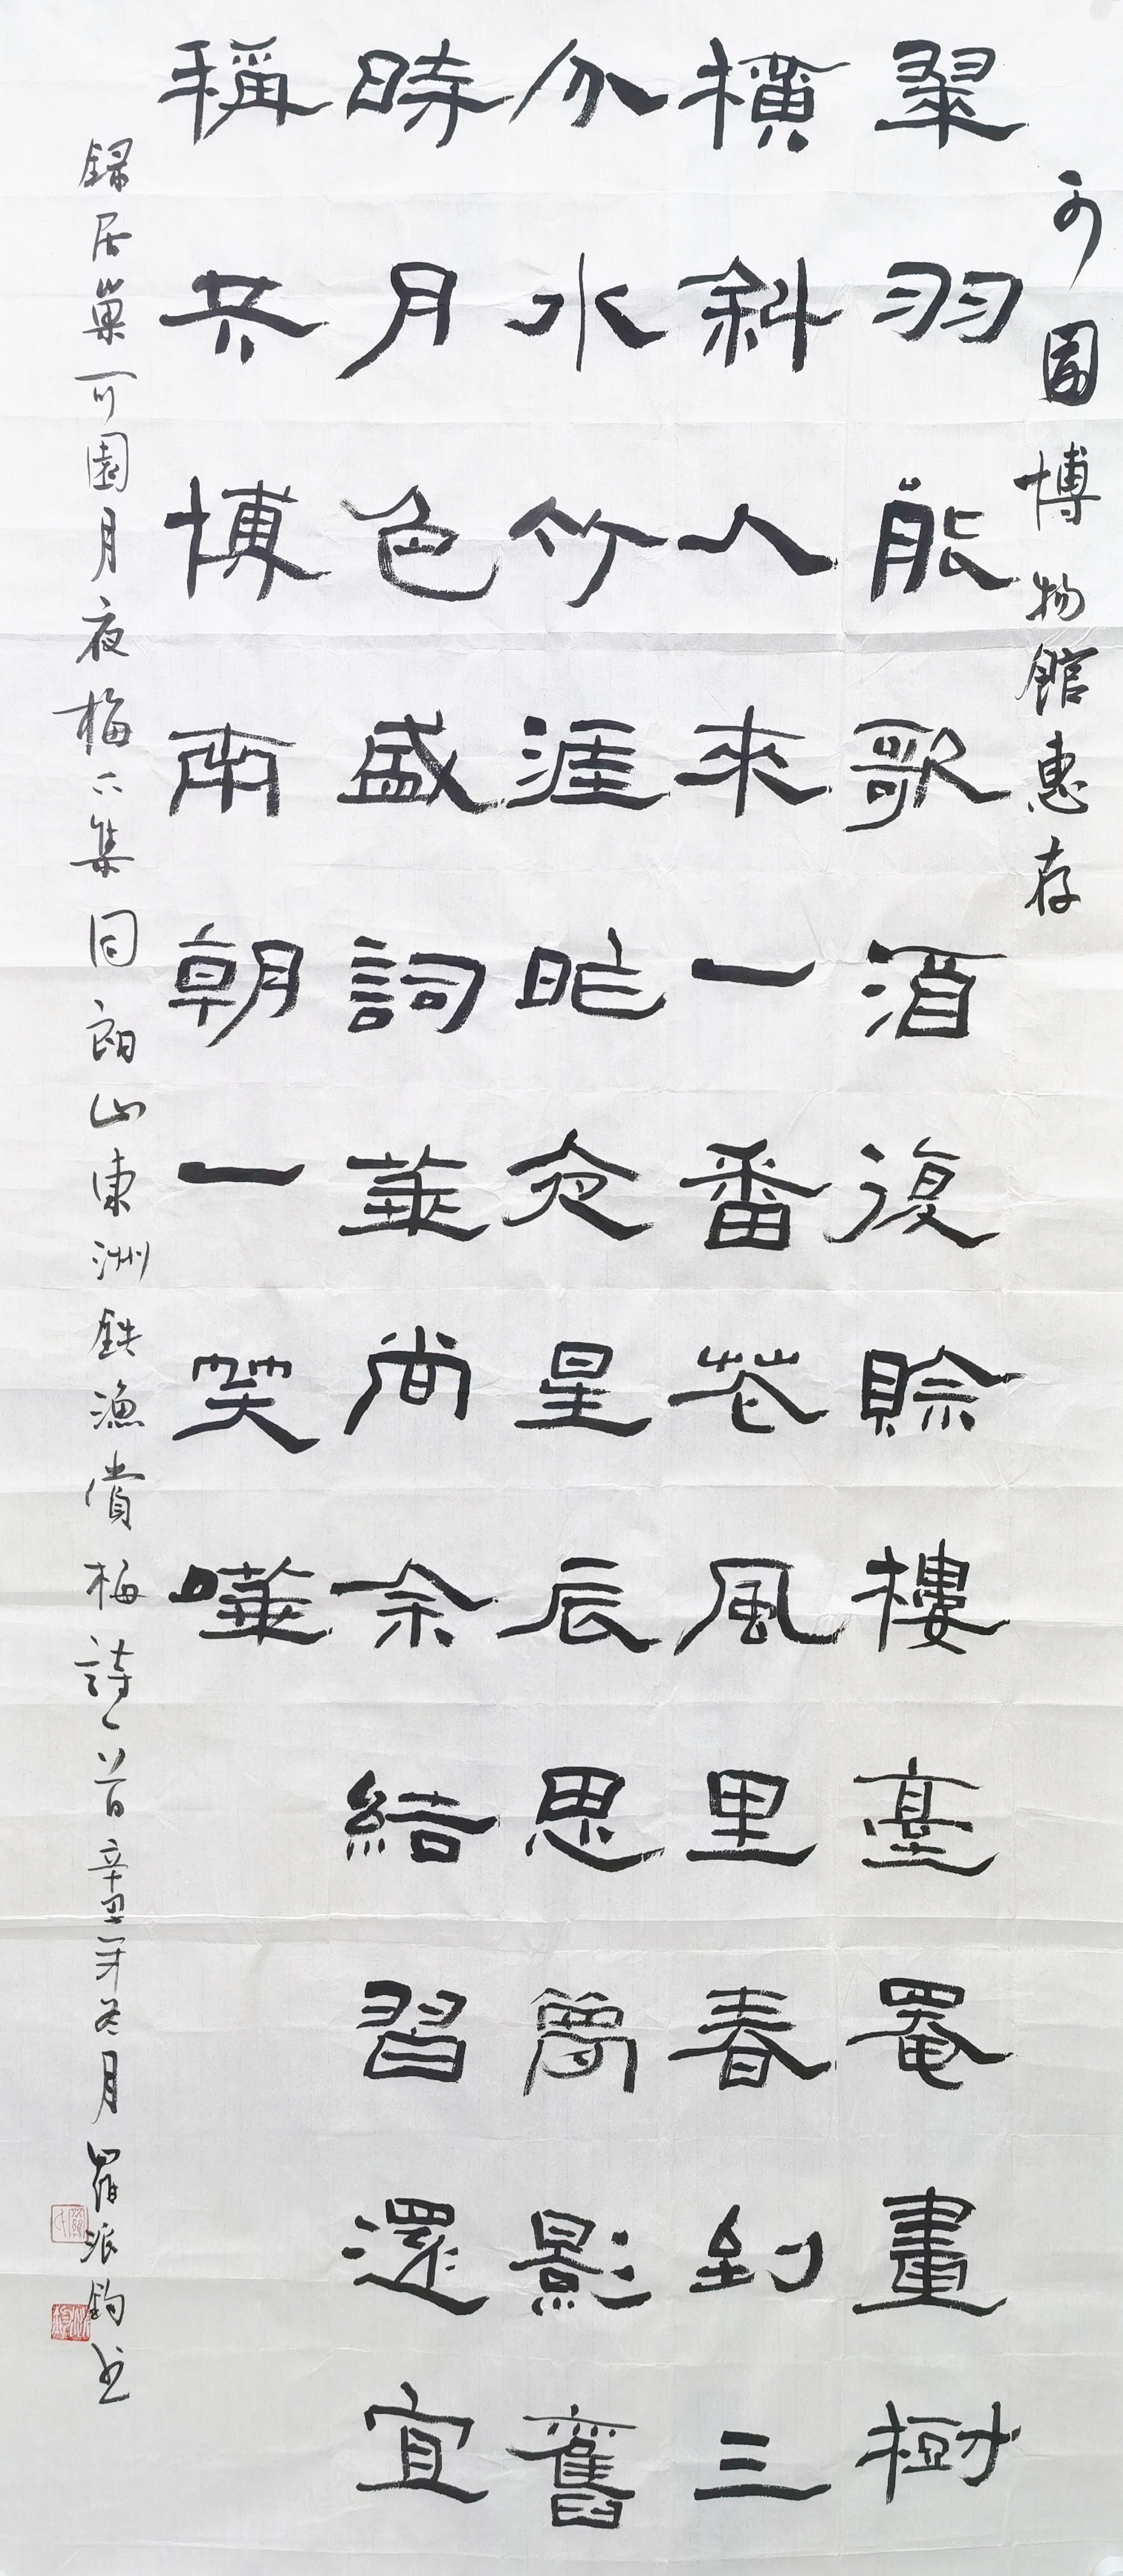 可園博物館惠存
翠羽能歌酒復賒樓臺罨畫樹
橫斜人來一番花風里春到三
分水竹涯昨夜星辰思影舊
時月色盛詞華尚余結習還宜
稱共博兩朝一笑嘩
錄居巢可園月夜梅下集同朗山東洲鉄漁賞梅詩一首辛丑年冬月羅派鈞书